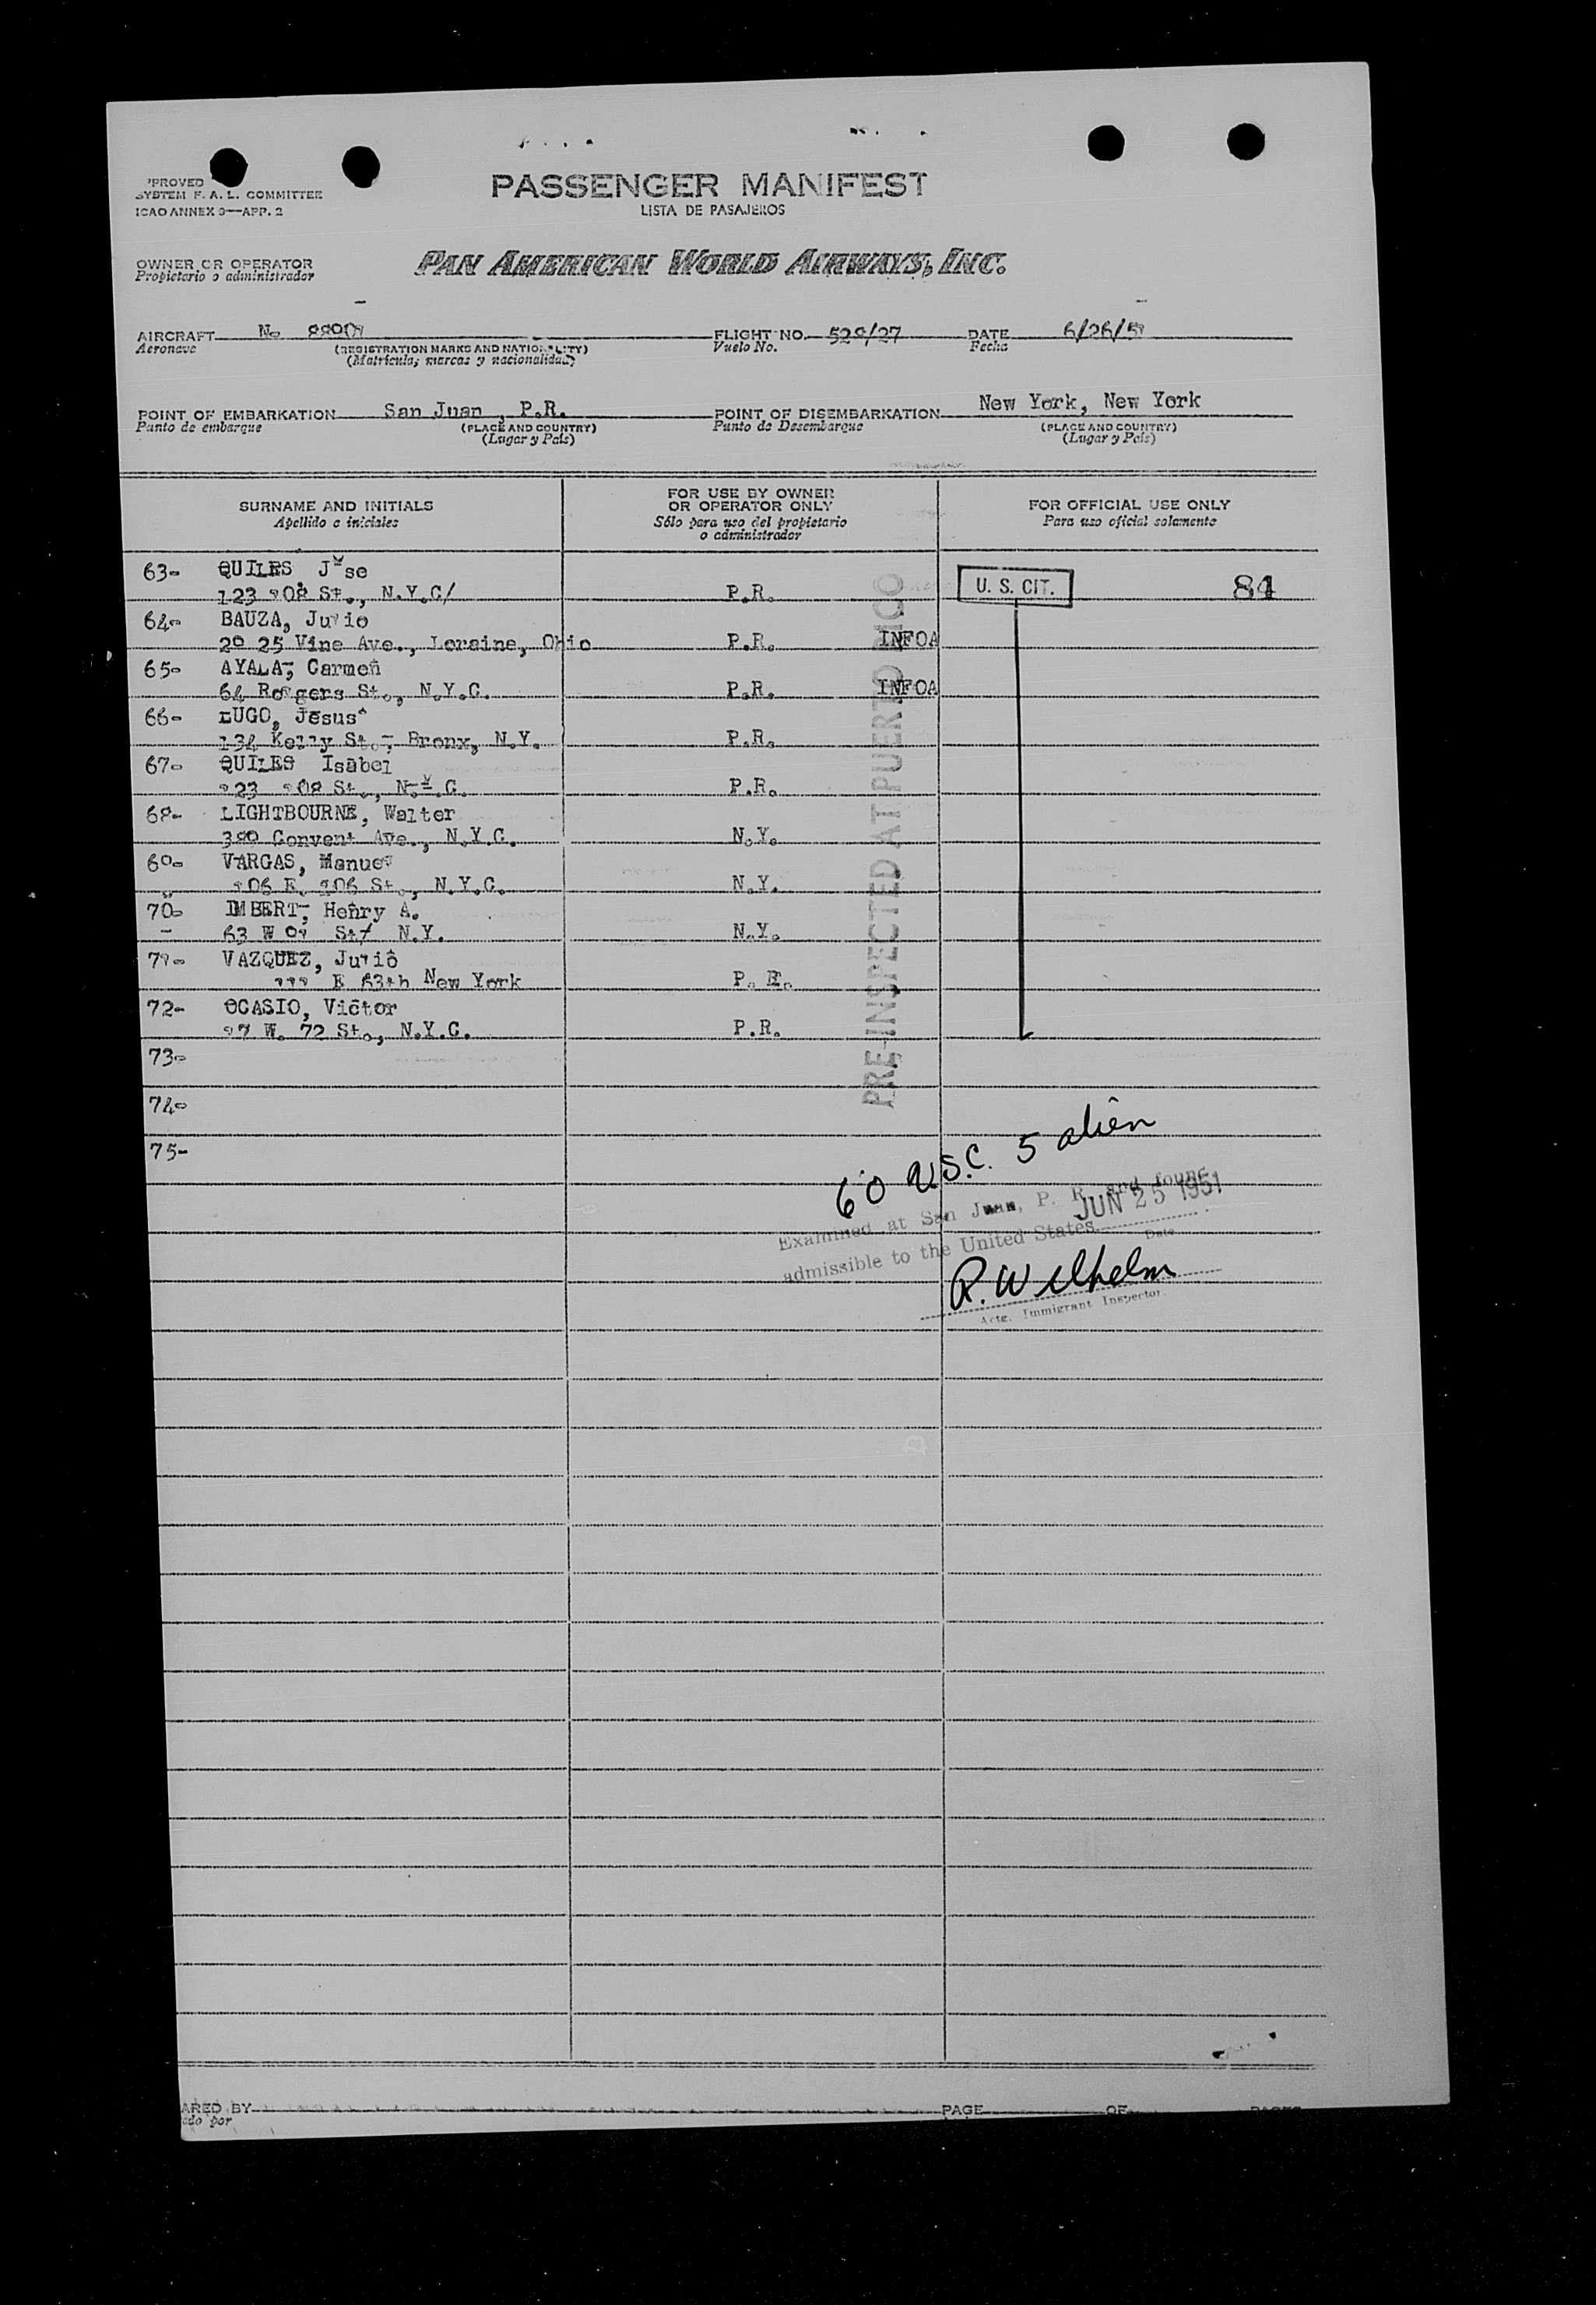 PROVED
SYSTEM F. A. L. COMMITTEE
ICAO ANNEX 9—APP. 2
PASSENGER MANIFEST
LISTA DE PASAJEROS
OWNER OR OPERATOR
Propietario o administrador
PAN AMERICAN WORLD AIRWAYS, INC.
AIRCRAFT
Aeronave
(REGISTRATION MARKS AND NATIONALITY)
(Matrícula, marcas y nacionalidad)
FLIGHT NO.
Vuelo No.
DATE 6/26/51
Fecha
POINT OF EMBARKATION San Juan, P.R.
Punto de embarque
(PLACE AND COUNTRY)
(Lugar y País)
POINT OF DISEMBARKATION New York, New York
Punto de Desembarque
(PLACE AND COUNTRY)
(Lugar y País)
SURNAME AND INITIALS
Apellido e iniciales
FOR USE BY OWNER
OR OPERATOR ONLY
Sólo para uso del propietario
o administrador
FOR OFFICIAL USE ONLY
Para uso oficial solamente
63- QUILES Jose
123 108 St., N.Y.C/ P.R. U. S. CIT. 84
64- BAUZA, Julio
20 25 Vine Ave., Loraine, Ohio P.R. INFOA
65- AYALA, Carmen
64 Rodgers St., N.Y.C. P.R. INFOA
66- LUGO, Jesus
134 Kelly St., Bronx, N.Y. P.R.
67- QUILES Isabel
123 108 St., N.Y.C. P.R.
68- LIGHTBOURNE, Walter
Convent Ave., N.Y.C. N.Y.
69- VARGAS, Manuel
106 E. 106 St., N.Y.C. N.Y.
70- IMBERT, Henry A.
63 W 91 St/ N.Y. N.Y.
71- VAZQUEZ, Julio
111 E 63th New York P. R.
72- OCASIO, Victor
17 W. 72 St., N.Y.C. P.R.
73-
74-
75-
PRE-INSPECTED AT PUERTO RICO
60 U.S.C. 5 alien
Examined at San Juan, P. R. and found
JUN 25 1951
admissible to the United States
Date
R. Wilhelm
Actg. Immigrant Inspector.
ARED BY
ado por
PAGE OF PAGES